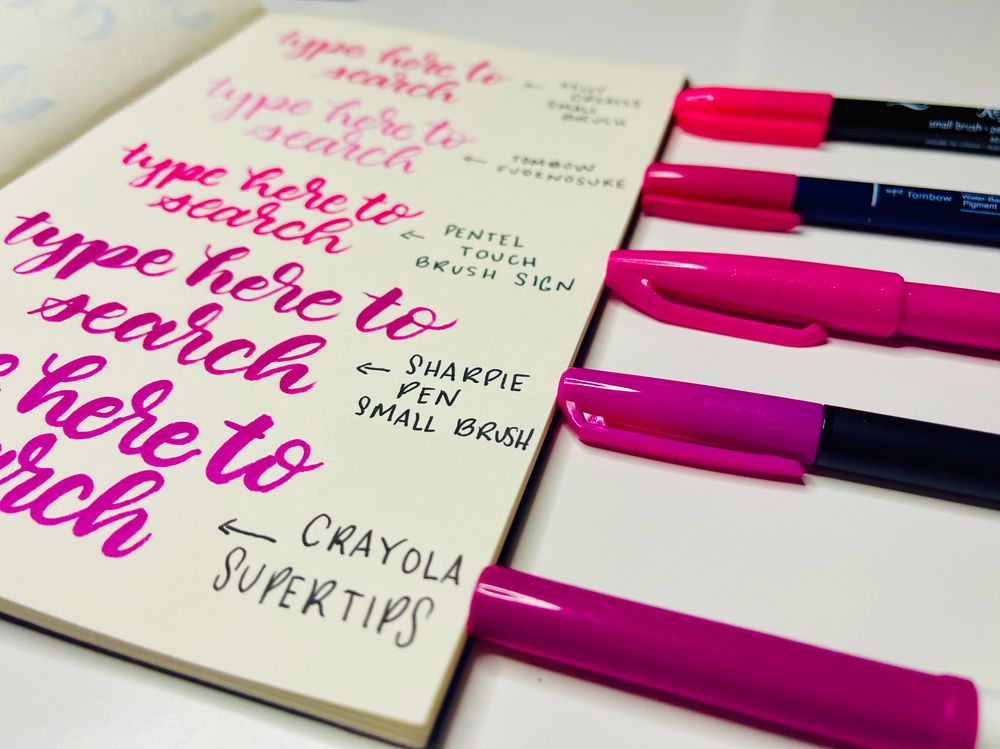 type here to
search
← KELLY
CREATIVE
SMALL
BRUSH
type here to
search
← TOMBOW
FUDENOSUKE
type here to
search
← PENTEL
TOUCH
BRUSH SIGN
type here to
search
← SHARPIE
PEN
SMALL BRUSH
here to
rch
← CRAYOLA
SUPERTIPS
small brush
Tombow
Water-Ba
Pigment